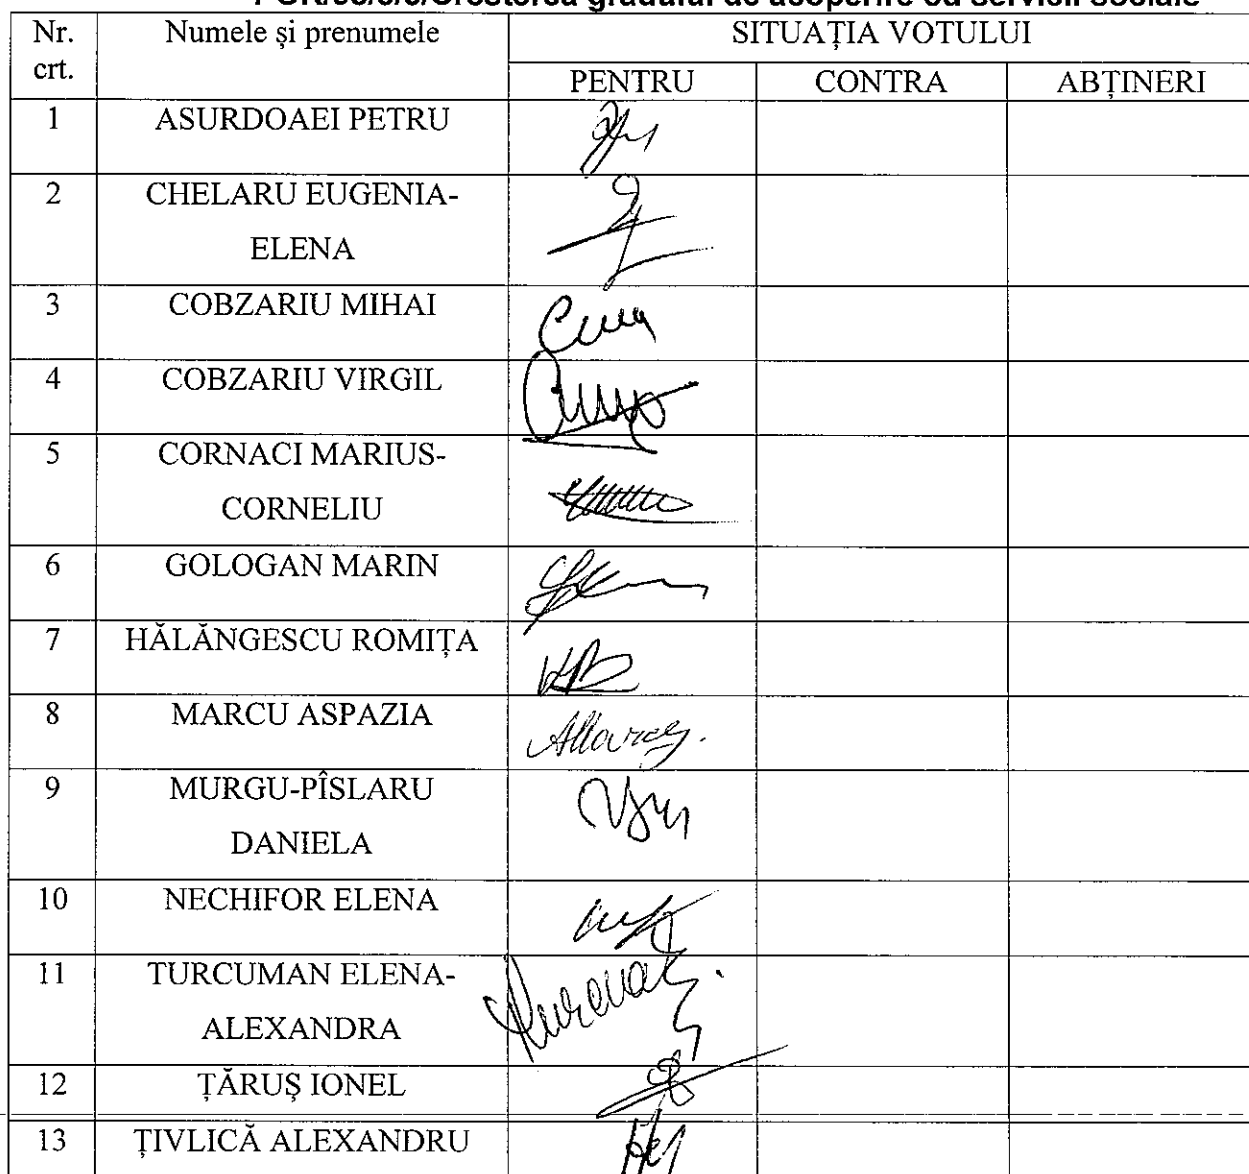 gradului de acoperire cu servicii sociale
Nr. crt. Numele și prenumele SITUAȚIA VOTULUI
PENTRU CONTRA ABȚINERI
1 ASURDOAEI PETRU
2 CHELARU EUGENIA-
ELENA
3 COBZARIU MIHAI
4 COBZARIU VIRGIL
5 CORNACI MARIUS-
CORNELIU
6 GOLOGAN MARIN
7 HĂLĂNGESCU ROMIȚA
8 MARCU ASPAZIA
9 MURGU-PÎSLARU
DANIELA
10 NECHIFOR ELENA
11 TURCUMAN ELENA-
ALEXANDRA
12 ȚĂRUȘ IONEL
13 ȚIVLICĂ ALEXANDRU